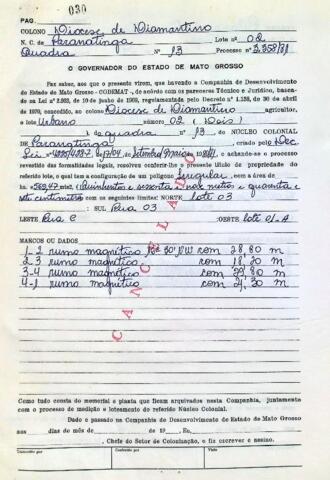 030
PAG.
COLONO Diocese de Diamantino Lote nº 02
N. C. de Paranatinga
Quadra Nº 13 Processo nº 2.258/81
O GOVERNADOR DO ESTADO DE MATO GROSSO
Faz saber, aos que o presente virem, que havendo a Companhia de Desenvolvimento
do Estado de Mato Grosso - CODEMAT -, de acordo com os pareceres Técnico e Jurídico, baseada
na Lei nº 2.903, de 10 de junho de 1969, regulamentada pelo Decreto nº 1.138, de 30 de abril
de 1970, concedido, ao colono Diocese de Diamantino agricultor,
o lote Urbano número 02 (Dois)
da quadra nº 13, do NÚCLEO COLONIAL
de Paranatinga, criado pelo Dec.
Lei de Setembro/Maio e achando-se o processo
revestido das formalidades legais, resolveu conferir-lhe o presente título de propriedade do
referido lote, o qual tem a configuração de um polígono Irregular, com a área de
hs 569,47 mts2, (Quinhentos e sessenta e nove metros e quarenta e
sete centímetros) com os seguintes limites: NORTE lote 03
SUL Rua 03
LESTE Rua C OESTE lote 01-A
MARCOS OU DADOS
1-2 rumo magnético NW com 28,80 m
2-3 rumo magnético com 18,20 m
3-4 rumo magnético com 29,80 m
4-1 rumo magnético com 21,30 m
CANCELADO
Como tudo consta do memorial e planta que ficam arquivados nesta Companhia, juntamente
com o processo de medição e loteamento do referido Núcleo Colonial.
Dado e passado na Companhia de Desenvolvimento do Estado de Mato Grosso
aos dias do mês de de 19 Eu,
, Chefe do Setor de Colonização, o fiz escrever e assino.
Transcrito por Conferido por Visto